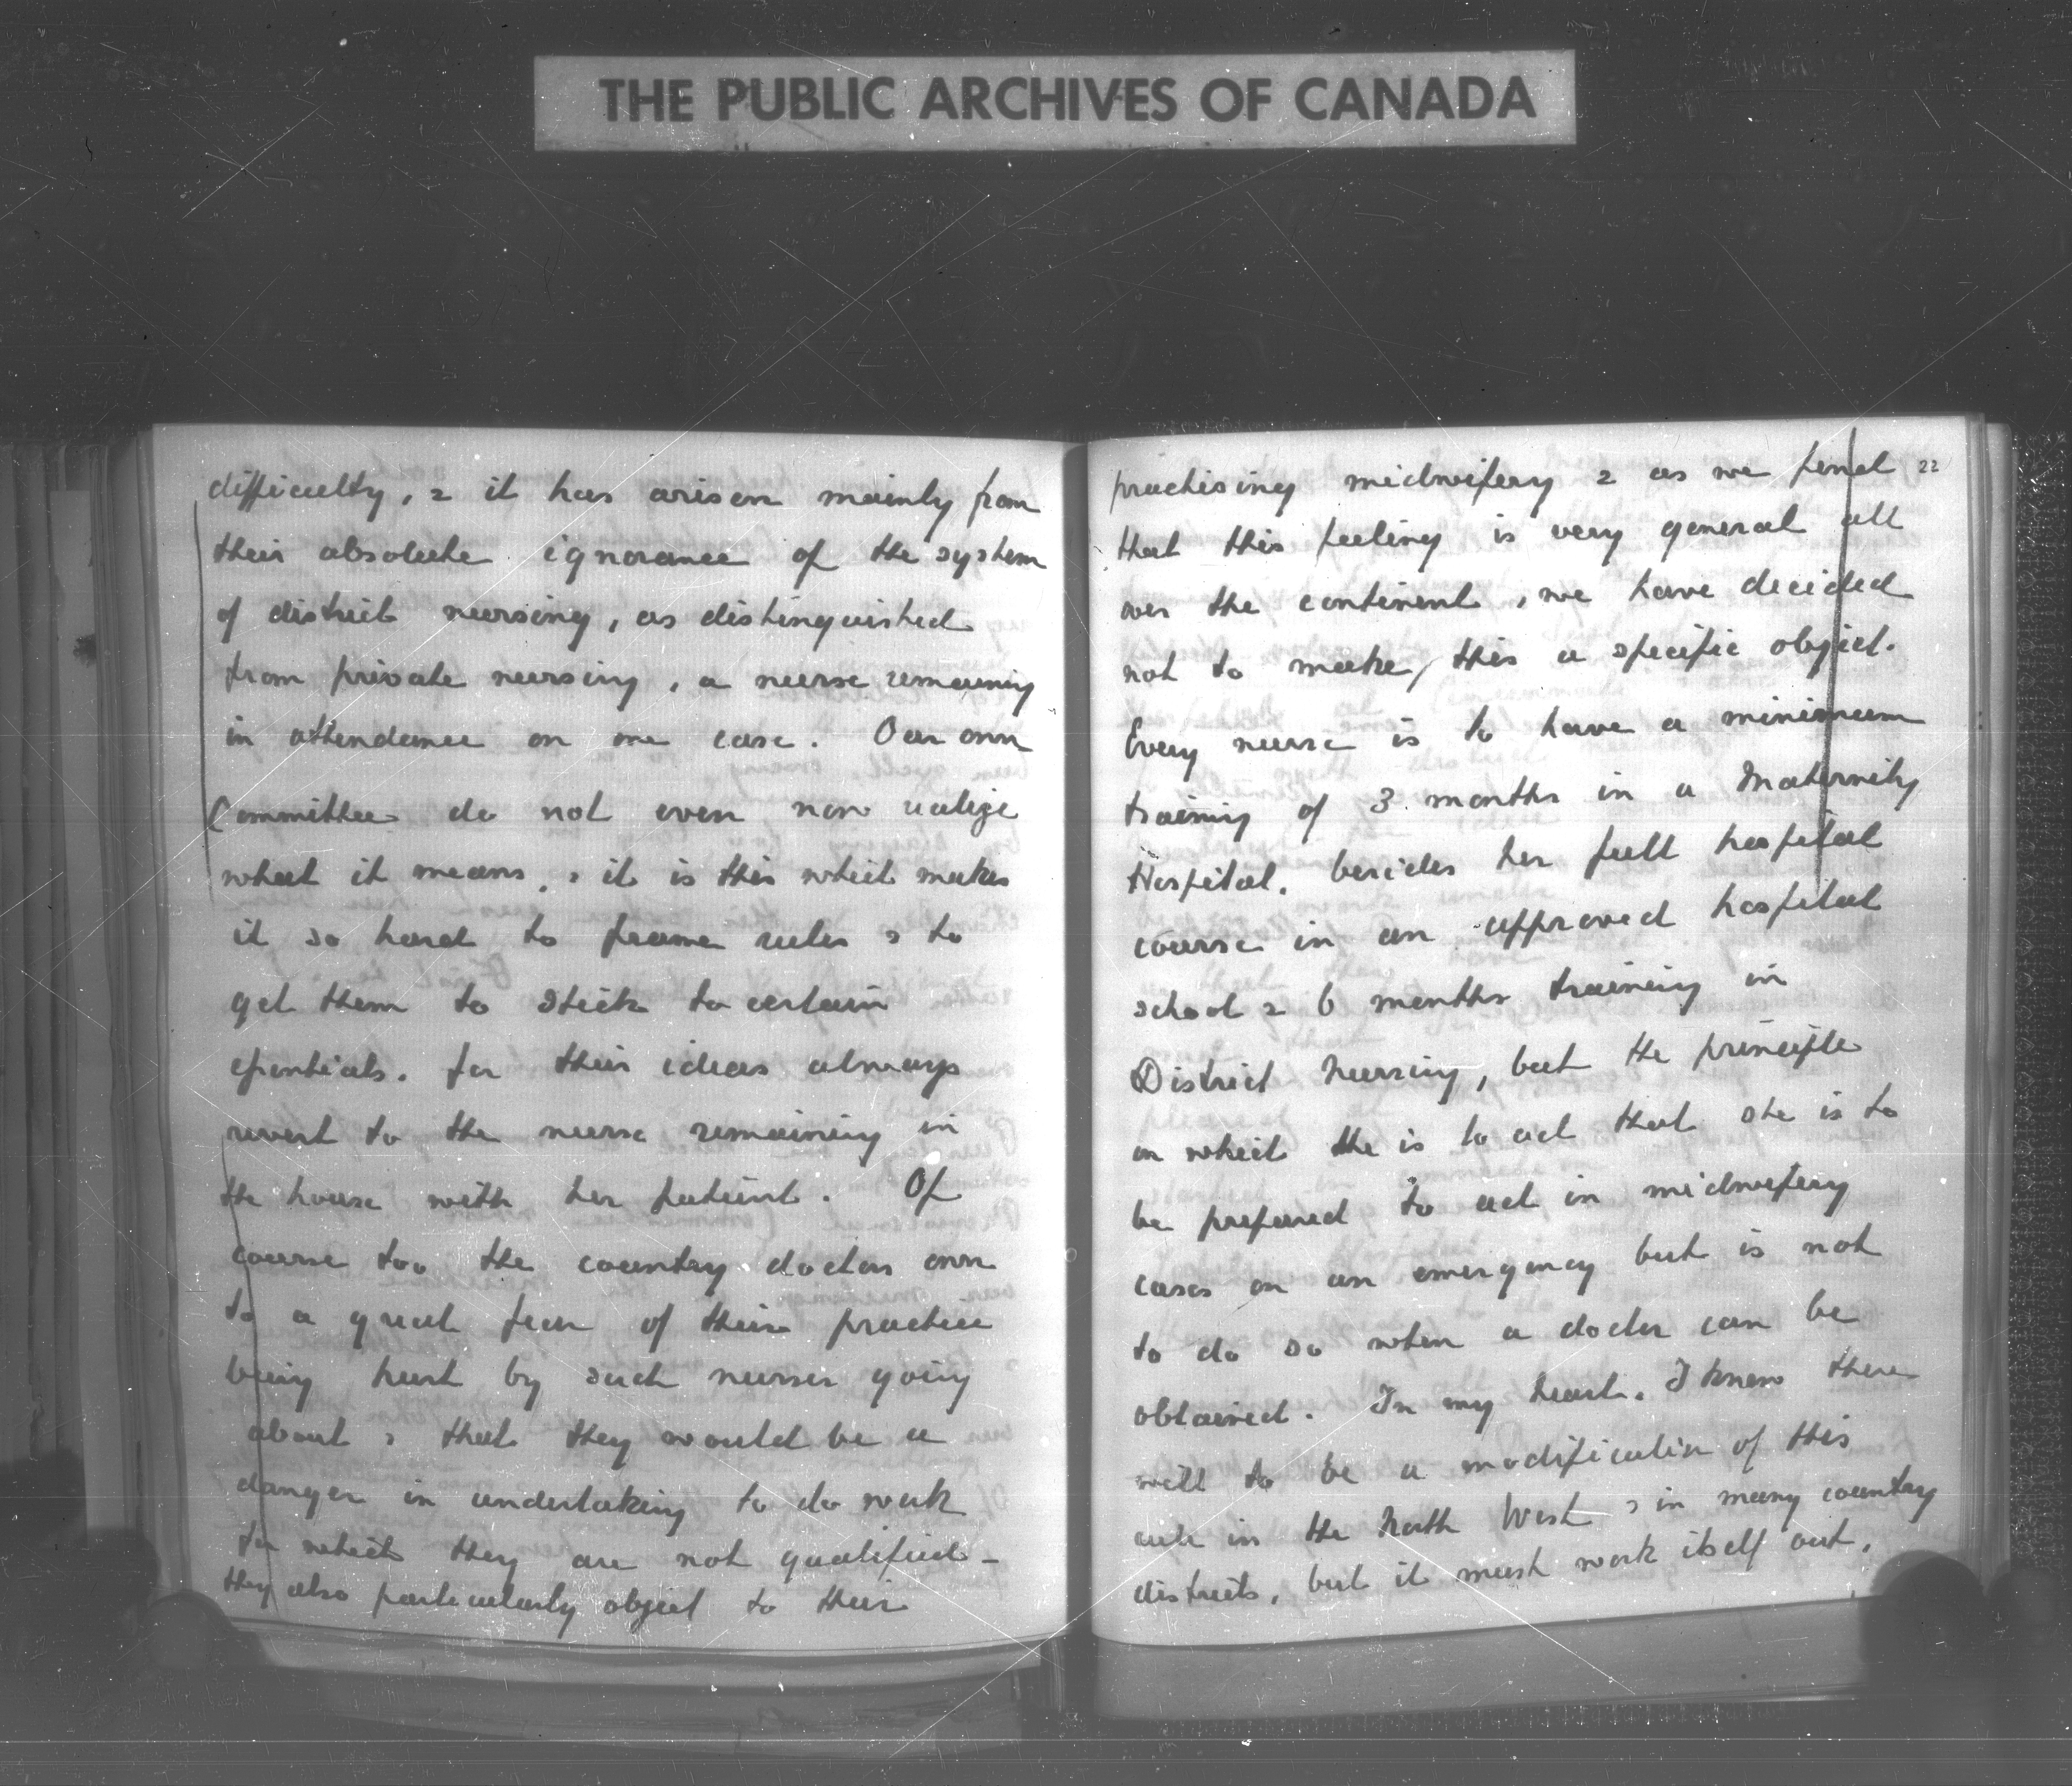 THE PUBLIC ARCHIVES OF CANADA
difficulty, & it has arisen mainly from
their absolute ignorance of the system
of district nursing, as distinguished
from private nursing, a nurse remaining
in attendance on one case. Our own
Committee do not even now realize
what it means, & it is this which makes
it so hard to frame rules & to
get them to stick to certain
essentials. for their ideas always
revert to the nurse remaining in
the house with her patient. Of
course too the country doctors own
to a great fear of their practice
being hurt by such nurses going
about & that they would be a
danger in undertaking to do work
for which they are not qualified -
they also particularly object to their
22
practising midwifery & as we find
that this feeling is very general all
over the continent, we have decided
not to make this a specific object.
Every nurse is to have a minimum
training of 3 months in a Maternity
Hospital. besides her full hospital
course in an approved hospital
school & 6 months training in
District Nursing, but the principle
on which she is to act that she is to
be prepared to act in midwifery
cases on an emergency but is not
to do so when a doctor can be
obtained. In my heart. I know there
will to be a modification of this
rule in the North West & in many country
districts, but it must work itself out.